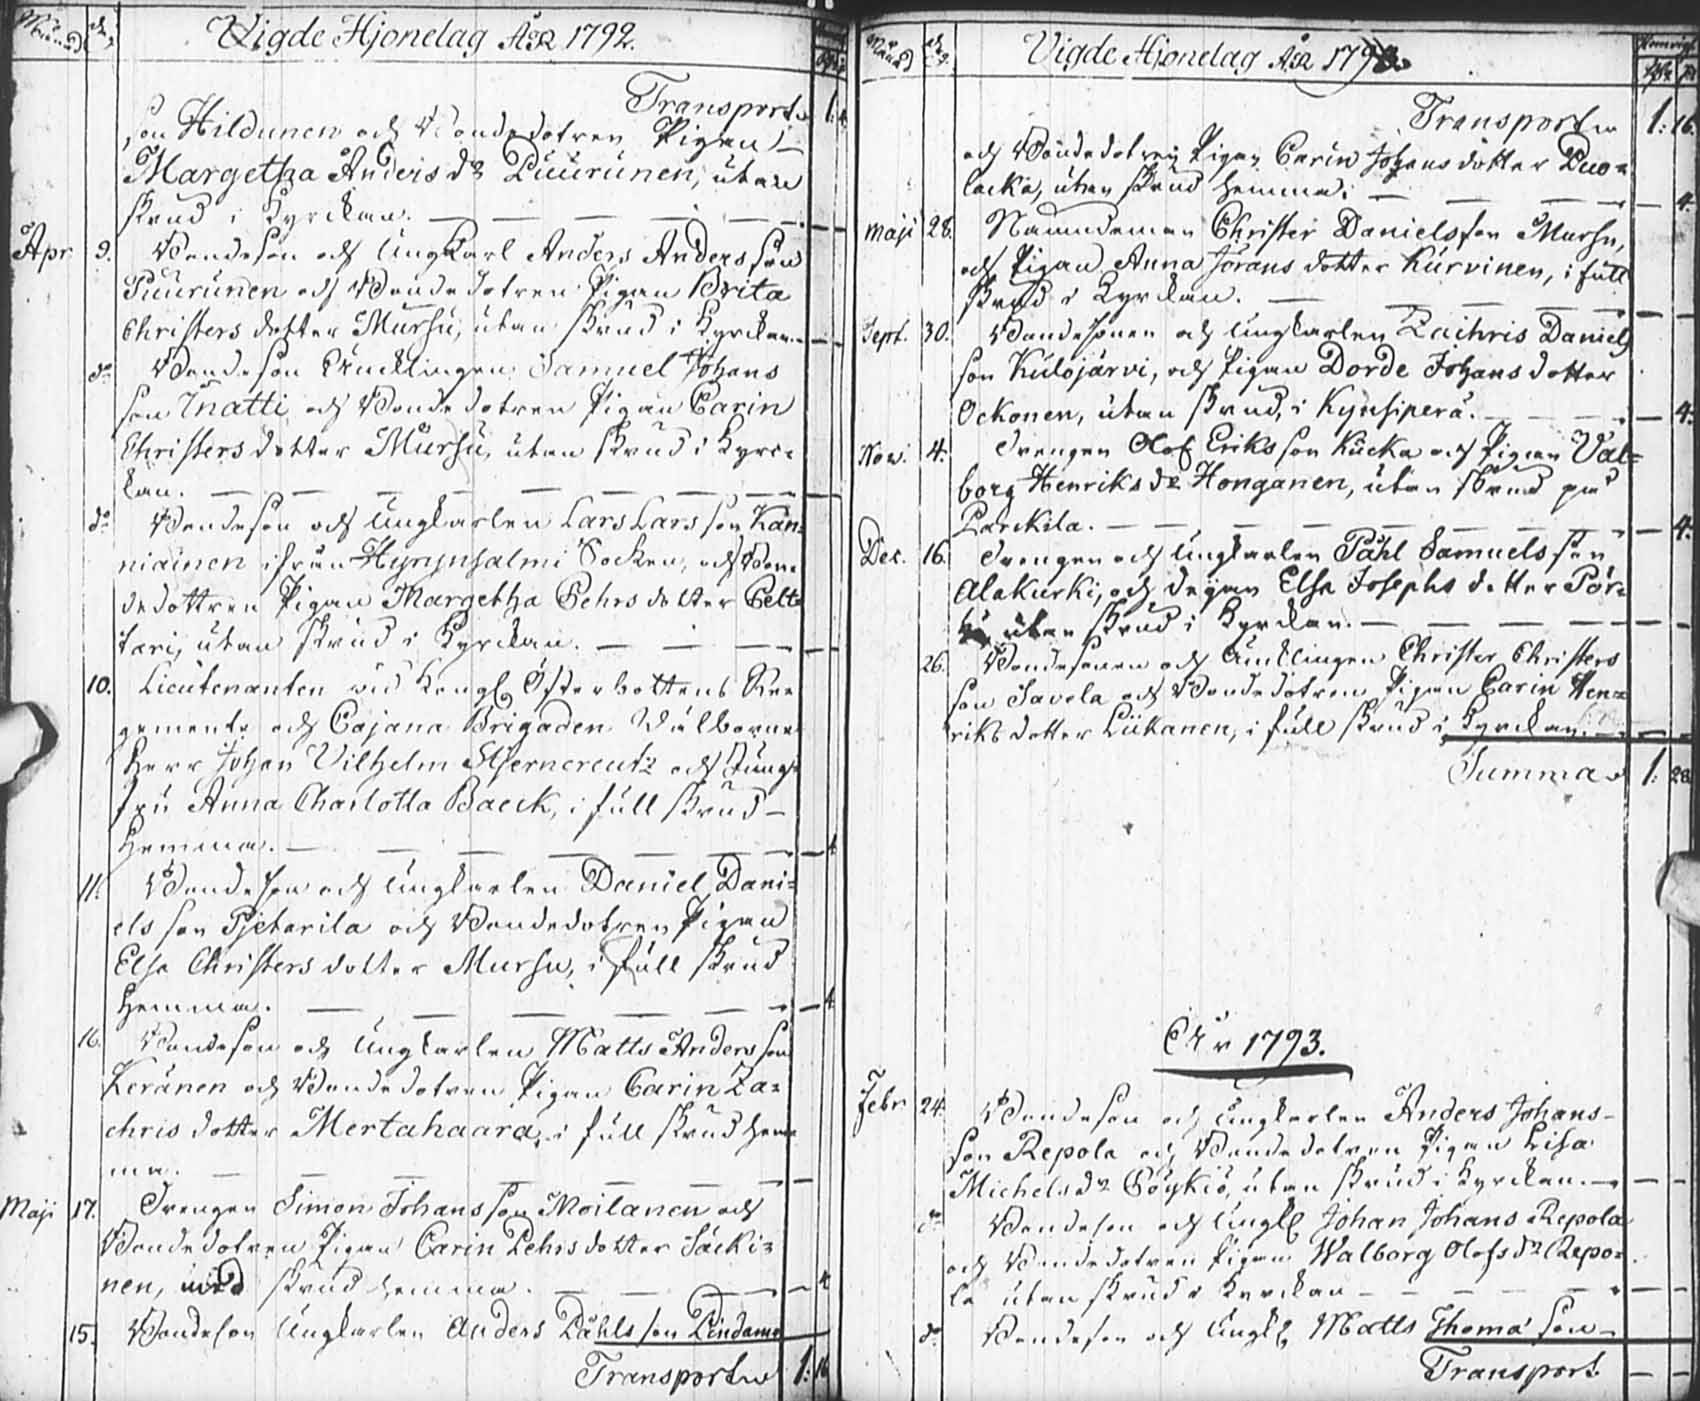 Månad dag Vigde Hjonelag År 1792.
Transport 1: 4.
son Hildunen och Bondedotren Pigan
Margetha Anders dr Puurunen, utan
skrud i Kyrckan. — — — — —
Apr 9. Bondeson och Ungkarl Anders Andersson
Puurunen och Bondedotren Pigan Brita
Christers dotter Mursu, utan skrud i Kyrckan. —
do Bondeson Enklingen Samuel Johans
son Inatti och Bondedotren Pigan Carin
Christers dotter Mursu, utan skrud i Kyrc=
kan. — — — — — —
do Bondeson och Ungkarlen Lars Larsson Kan=
niainen ifrån Hyrynsalmi Socken, och Bon=
dedottren Pigan Margetha Pehrs dotter Pelt=
tari, utan skrud i Kyrckan. — — —
10. Lieutenanten vid Kongl. Österbottens Re=
gemente och Cajana Brigaden Välborne
Herr Johan Vilhelm Stjerncreutz och Jung=
fru Anna Charlotta Baeck, i full skrud —
hemma. — — — — — 4
11. Bondeson och Ungkarlen Daniel Dani=
els son Pjetarila och Bondedotren Pigan
Elsa Christers dotter Mursu, i full skrud
hemma. — — — — — 4
16. Bondeson och Ungkarlen Matts Anders son
Keränen och Bondedotren Pigan Carin Za=
chris dotter Mertahaara, i full skrud hem=
ma. — — — — —
Maji 17. Drengen Simon Johans son Moilanen och
Bondedotren Pigan Carin Pehrs dotter Säcki=
nen, med skrud hemma. — — — 4
15. Bondeson Ungkarlen Anders Påhls son Pindamo
Transport 1: 16
Månad dag Vigde Hjonelag År 179
Transport 1: 16.
och Bondedotren Pigan Carin Johans dotter Puo=
lacka, utan skrud hemma. — — — 4.
Maji 28. Namndeman Christer Danielsson Mursu,
och Pigan Anna Jörans dotter Kurvinen, i full
skrud i Kyrckan. — — — —
Sept. 30. Bondesonen och Ungkarlen Zachris Daniels
son Kulojärvi, och Pigan Dorde Johans dotter
Ockonen, utan skrud, i Kynsiperä. — — — 4.
Nov. 4. Drengen Olof Eriks son Kucka och Pigan Val=
borg Henriks dr Honganen, utan skrud på
Larckila. — — — — — 4.
Dec. 16. Drengen och Ungkarlen Påhl Samuels son
Alakurki, och Pigan Elsa Josephs dotter Pör=
utan skrud i Kyrckan. — — — —
26. Bondesonen och Encklingen Christer Christers
son Savela och Bondedotren Pigan Carin Hen=
riks dotter Liikanen, i full skrud i Kyrckan. —
Summa 1: 28
År 1793.
Febr. 24. Bondeson och Ungkarlen Anders Johans=
son Repola och Bondedotren Pigan Lisa
Michels dr Pöykiö, utan skrud i Kyrckan. —
do Bondeson och Ungk. Johan Johans Repola
och Bondedotren Pigan Walborg Olofs dr Repo=
la utan skrud i Kyrckan — — — —
do Bondeson och Ungk. Matts Thoma son —
Transport. — —